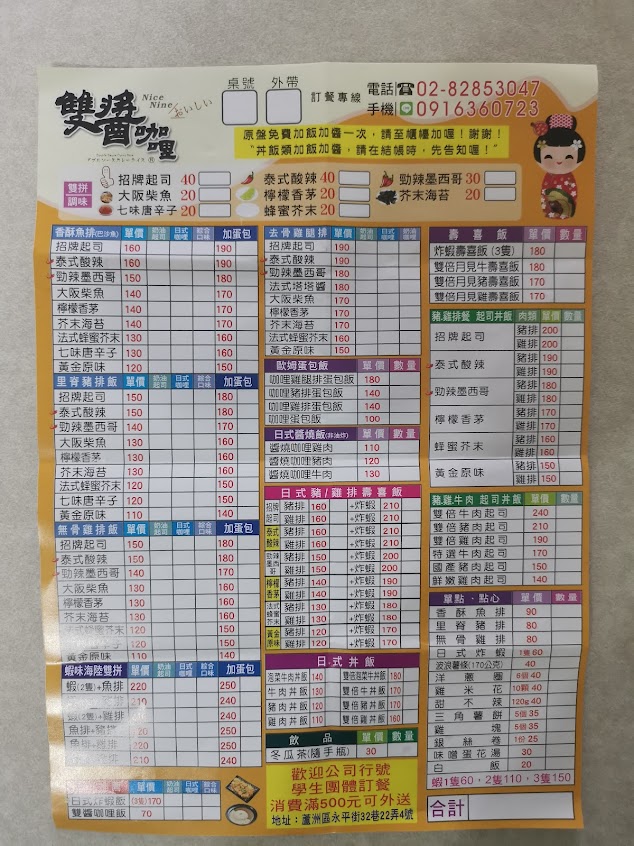 雙醬咖哩
Nice Nine
おいしい
桌號 外帶
訂餐專線
電話 02-82853047
手機 0916360723
原盤免費加飯加醬一次，請至櫃檯加喔！謝謝！
"丼飯類加飯加醬，請在結帳時，先告知喔！"
雙拼調味
招牌起司 40 泰式酸辣 40 勁辣墨西哥 30
大阪柴魚 20 檸檬香茅 20 芥末海苔 20
七味唐辛子 20 蜂蜜芥末 20
香酥魚排(巴沙魚) 單價 奶油起司 日式咖哩 綜合口味 加蛋包
招牌起司 160 190
泰式酸辣 160 190
勁辣墨西哥 150 180
大阪柴魚 140 170
檸檬香茅 140 170
芥末海苔 140 170
法式蜂蜜芥末 130 160
七味唐辛子 130 160
黃金原味 120 150
里脊豬排飯 單價 奶油起司 日式咖哩 綜合口味 加蛋包
招牌起司 150 180
泰式酸辣 150 180
勁辣墨西哥 140 170
大阪柴魚 130 160
檸檬香茅 130 160
芥末海苔 130 160
法式蜂蜜芥末 120 150
七味唐辛子 120 150
黃金原味 110 140
無骨雞排飯 單價 奶油起司 日式咖哩 綜合口味 加蛋包
招牌起司 150 180
泰式酸辣 150 180
勁辣墨西哥 140 170
大阪柴魚 130 160
檸檬香茅 130 160
芥末海苔 130 160
法式蜂蜜芥末 120 150
七味唐辛子 120 150
黃金原味 110 140
蝦味海陸雙拼 單價 奶油起司 日式咖哩 綜合口味 加蛋包
蝦(2隻)+魚排 220 250
210 240
蝦(2隻)+雞排 210 240
魚排+豬排 210 240
魚排+雞排 210 240
200
單價 奶油起司 日式咖哩 綜合口味 加蛋包
日式炸蝦飯 (3隻)170
雙醬咖哩飯 70
去骨雞腿排 單價 奶油起司 日式咖哩 綜合口味 加蛋包
招牌起司 190
泰式酸辣 190
勁辣墨西哥 180
法式塔塔醬 180
大阪柴魚 170
檸檬香茅 170
芥末海苔 170
法式蜂蜜芥末 160
黃金原味 150
歐姆蛋包飯 單價 數量
咖哩雞腿排蛋包飯 180
咖哩豬排蛋包飯 140
咖哩雞排蛋包飯 140
咖哩蛋包飯 100
日式醬燒飯(非油炸) 單價 數量
醬燒咖哩雞肉 110
醬燒咖哩豬肉 120
醬燒咖哩牛肉 130
日式豬/雞排壽喜飯
招牌起司 豬排 160 +炸蝦 210
雞排 160 +炸蝦 210
泰式酸辣 豬排 160 +炸蝦 210
雞排 160 +炸蝦 210
勁辣墨西哥 豬排 150 +炸蝦 200
雞排 150 +炸蝦 200
檸檬香茅 豬排 140 +炸蝦 190
雞排 140 +炸蝦 190
法式蜂蜜芥末 豬排 130 +炸蝦 180
雞排 130 +炸蝦 180
黃金原味 豬排 120 +炸蝦 170
雞排 120 +炸蝦 170
日式丼飯
泡菜牛肉丼飯 140 雙倍泡菜牛丼飯 180
牛肉丼飯 130 雙倍牛丼飯 170
豬肉丼飯 120 雙倍豬丼飯 170
雞肉丼飯 110 雙倍雞丼飯 160
飲品 單價 數量
冬瓜茶(隨手瓶) 30
歡迎公司行號
學生團體訂餐
消費滿500元可外送
地址：蘆洲區永平街32巷22弄4號
壽喜飯 單價 數量
炸蝦壽喜飯(3隻) 180
雙倍月見牛壽喜飯 180
雙倍月見豬壽喜飯 170
雙倍月見雞壽喜飯 170
豬雞排餐 起司丼飯 肉類 單價 數量
招牌起司 豬排 200
雞排 200
泰式酸辣 豬排 190
雞排 190
勁辣墨西哥 豬排 180
雞排 180
檸檬香茅 豬排 170
雞排 170
蜂蜜芥末 豬排 160
雞排 160
黃金原味 豬排 150
雞排 150
豬雞牛肉 起司丼飯 單價 數量
雙倍牛肉起司 240
雙倍豬肉起司 210
雙倍雞肉起司 190
特選牛肉起司 170
國產豬肉起司 150
鮮嫩雞肉起司 140
單點．點心 單價 數量
香酥魚排 90
里脊豬排 80
無骨雞排 80
日式炸蝦 1隻60
波浪薯條(170公克) 40
洋蔥圈 6個40
雞米花 10顆40
甜不辣 120g40
三角薯餅 5個35
雞塊 5個35
銀絲卷 1份25
味噌蛋花湯 30
白飯 20
蝦1隻60，2隻110，3隻150
合計